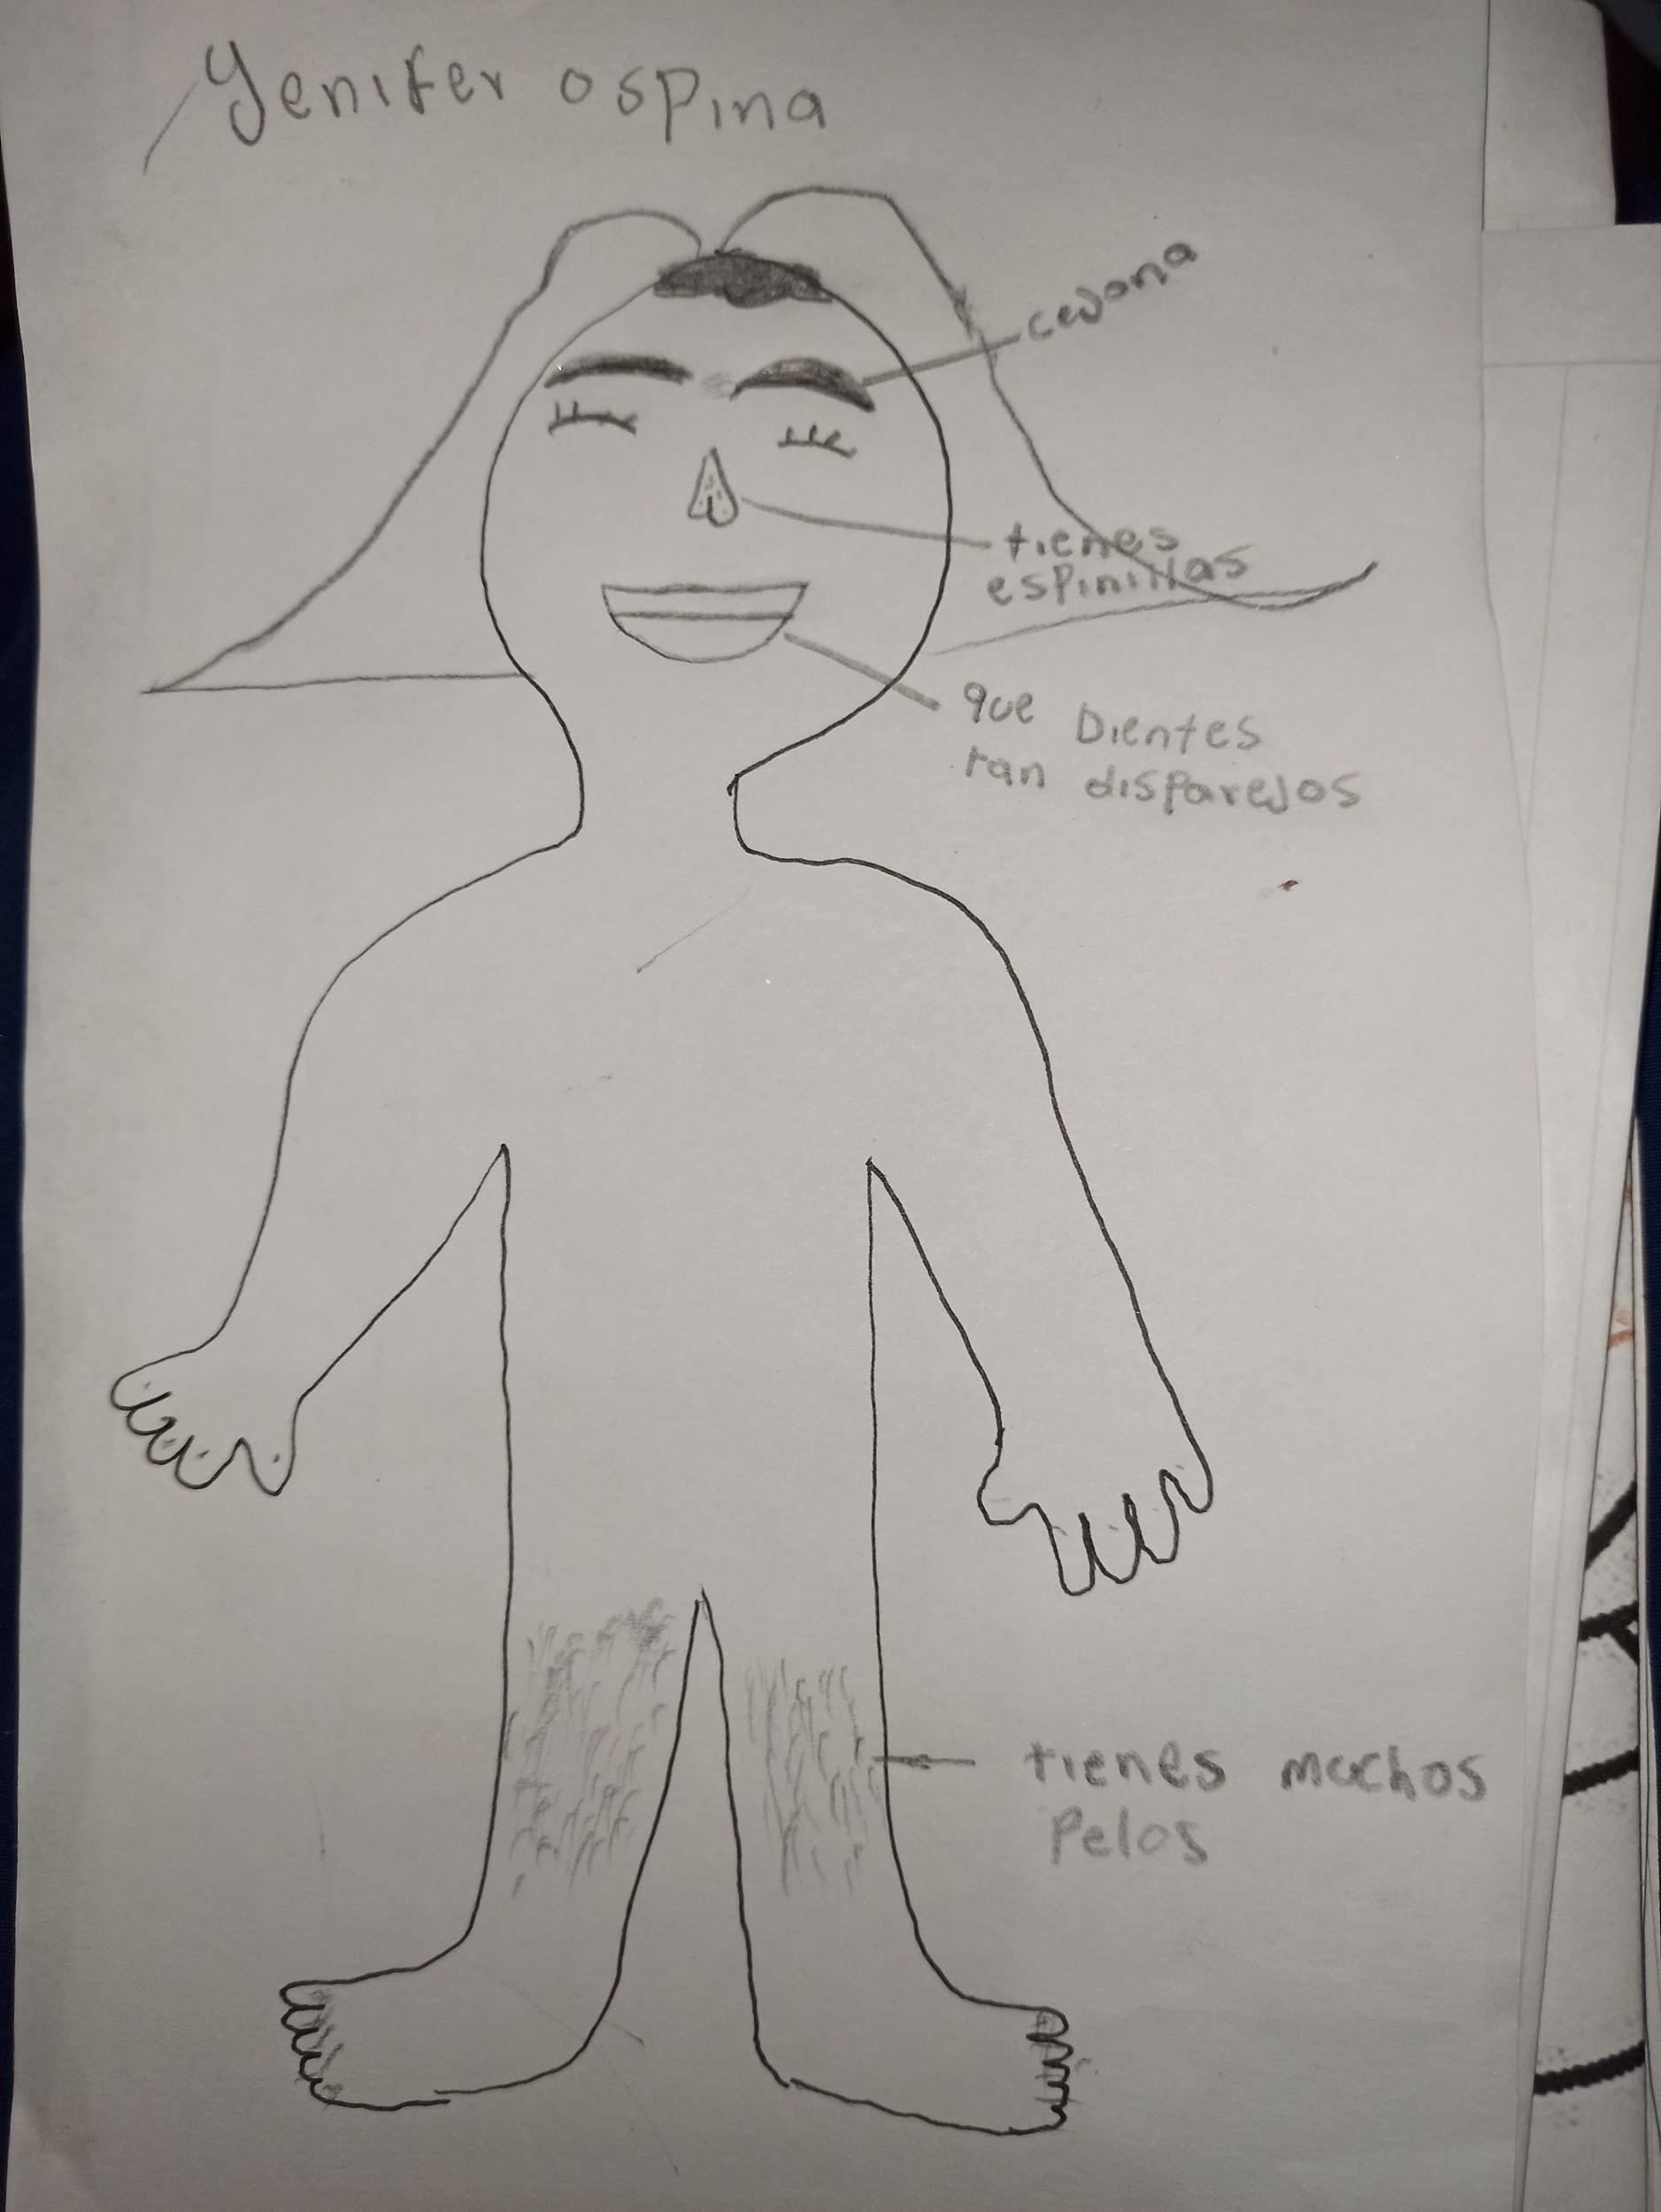 Yenifer ospina
cejona
tienes
espinillas
que Dientes
tan disparejos
tienes muchos
Pelos